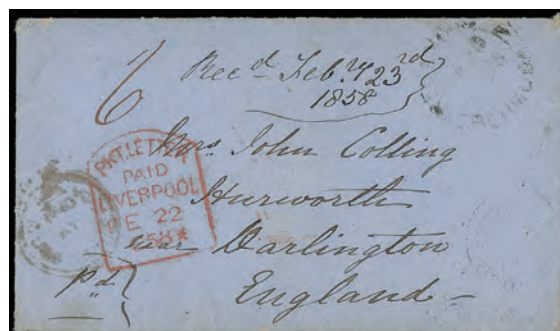 6
Recd Feby 23rd
1858
Mrs. John Colling
Hurworth
near Darlington
England
pd
PKT. LETTER
PAID
LIVERPOOL
FE 22
58